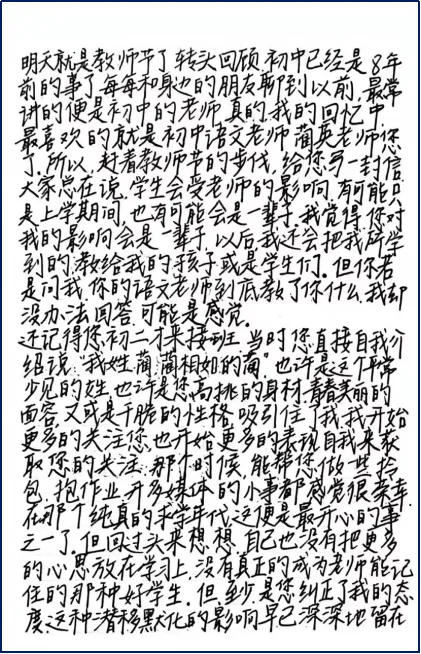 明天就是教师节了,转头回顾,初中已经是8年
前的事了,每每和身边的朋友聊到以前,最常
讲的便是初中的老师,真的,我的回忆中,
最喜欢的就是初中语文老师蔺英老师您
了。所以,赶着教师节的步伐,给您写一封信。
大家总在说,学生会受老师的影响,有可能只
是上学期间,也有可能会是一辈子。我觉得,你对
我的影响会是一辈子,以后,我还会把我所学
到的,教给我的孩子或是学生们。但你若
是问我,你的语文老师到底教了你什么,我却
没办法回答,可能是感觉。
还记得您初二才来接班,当时,您直接自我介
绍说:"我姓蔺,蔺相如的蔺"。也许是这个平常
少见的姓,也许是您高挑的身材,青春美丽的
面容,又或是干脆的性格,吸引住了我,我开始
更多的关注您,也开始更多的表现自我来获
取您的关注。那个时候,能帮您做一些拾
包,抱作业,开多媒体的小事都感觉很荣幸,
在那个纯真的求学年代,这便是最开心的事
之一了。但回过头来想想,自己也没有把更多
的心思放在学习上,没有真正的成为老师能记
住的那种好学生。但,至少是您纠正了我的态
度。这种潜移默化的影响早已深深地留在